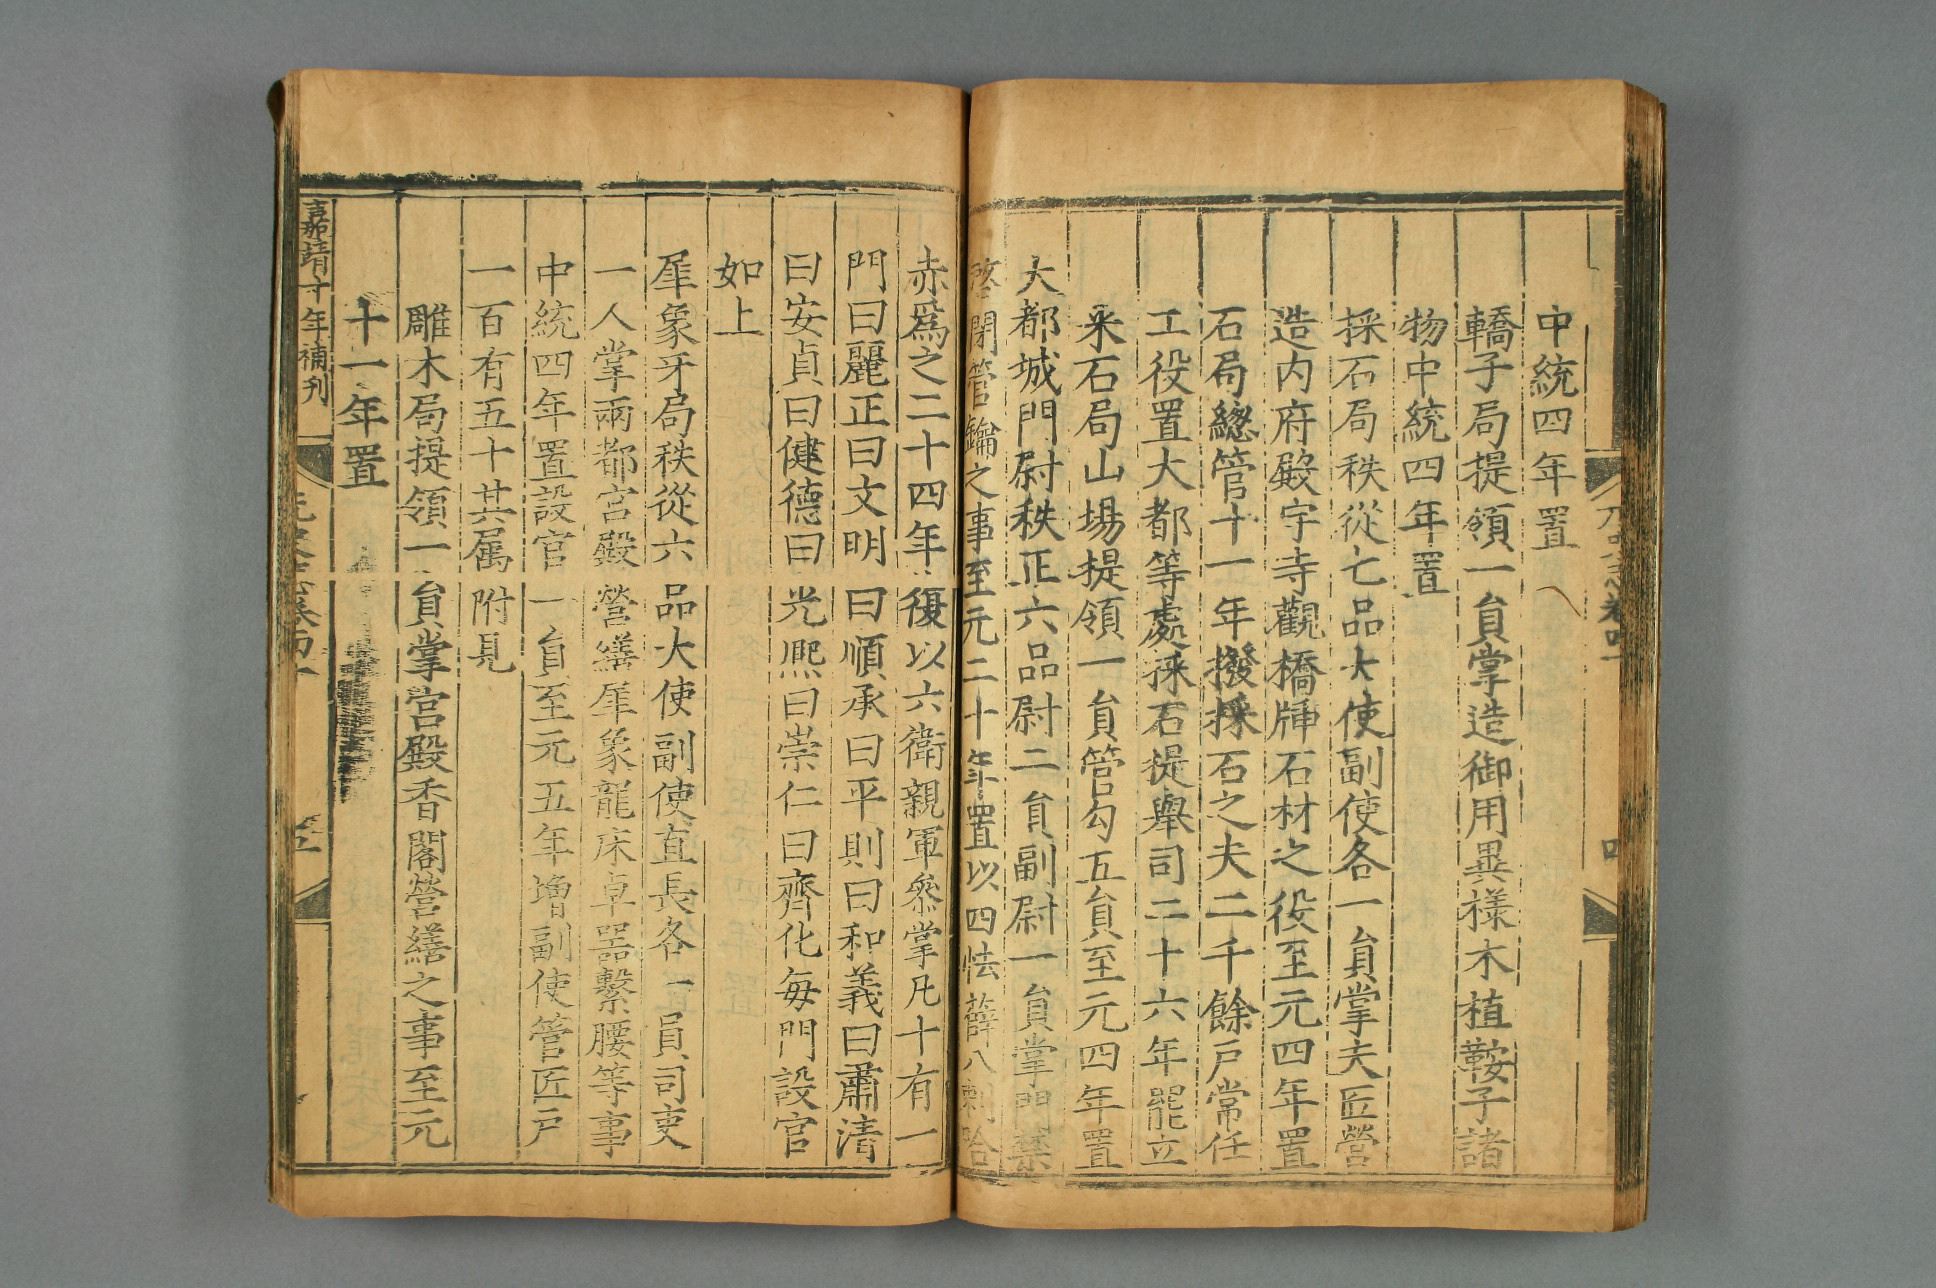 中統四年置
轎子局提領一員掌造御用異様木植鞍子諸
物中統四年置
採石局秩從七品大使副使各一員掌夫匠營
造内府殿宇寺觀橋牐石材之役至元四年置
石局總管十一年撥採石之夫二千餘户常任
工役置大都等處採石提舉司二十六年罷立
采石局山場提領一員管勾五員至元四年置
大都城門尉秩正六品尉二員副尉一員掌門禁
啓閉管鑰之事至元二十年置以四怯薛八剌哈
赤爲之二十四年復以六衛親軍叅掌凡十有一
門曰麗正曰文明曰順承曰平則曰和義曰肅清
曰安貞曰健德曰光熈曰崇仁曰齊化每門設官
如上
犀象牙局秩從六品大使副使直長各一員司吏
一人掌兩都宮殿營繕犀象龍床卓器繫腰等事
中統四年置設官一員至元五年増副使管匠户
一百有五十其属附見
雕木局提領一員掌宮殿香閣營繕之事至元
十一年置
嘉靖十年補刋